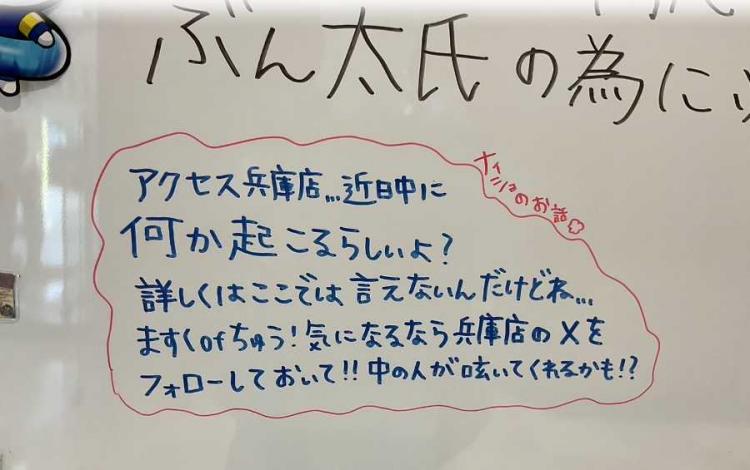 ぶん太氏の為に
ナイショのお話
アクセス兵庫店...近日中に
何か起こるらしいよ？
詳しくはここでは言えないんだけどね...
ますくofちゅう！気になるなら兵庫店のXを
フォローしておいて!!中の人が呟いてくれるかも!?